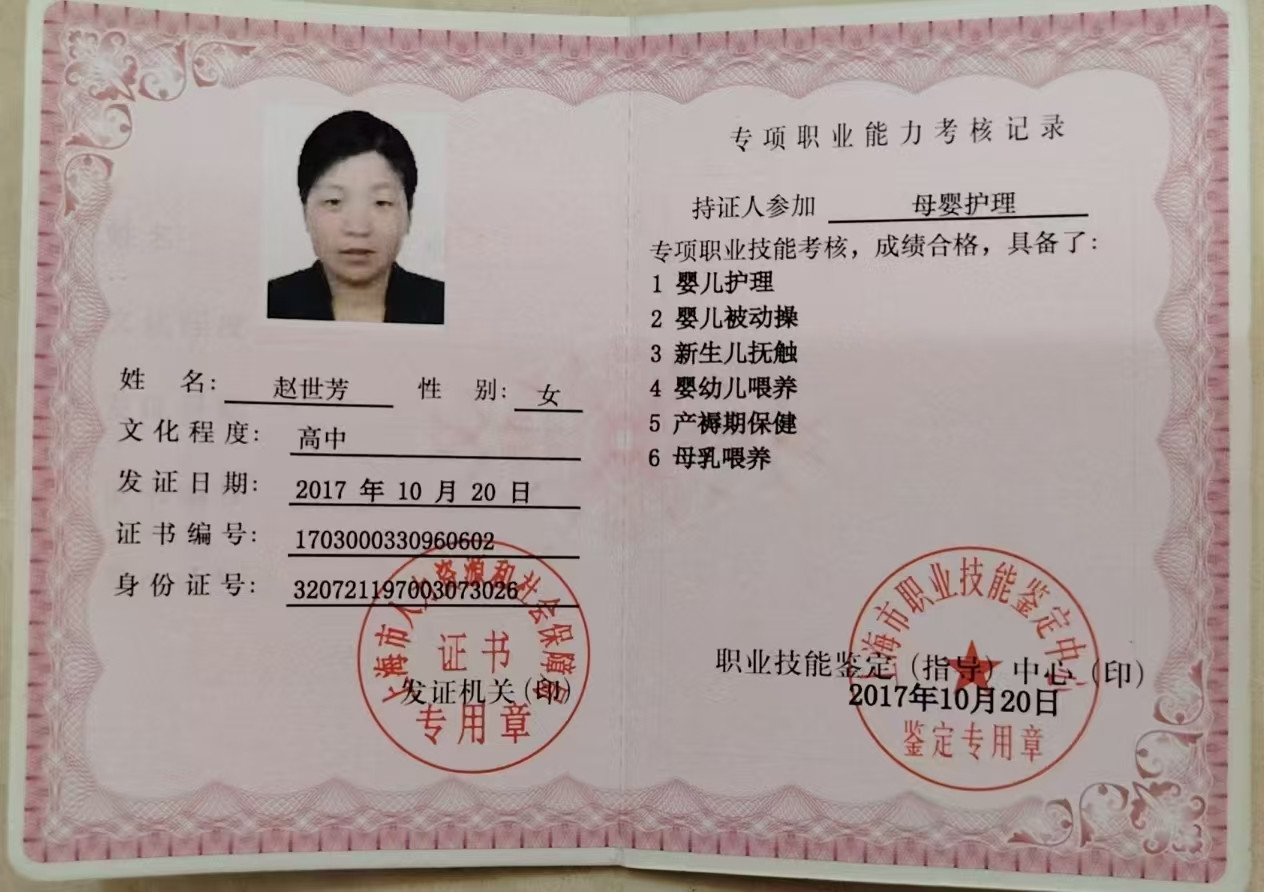 姓 名: 赵世芳 性 别: 女
文化程度: 高中
发证日期: 2017 年 10 月 20 日
证书编号: 1703000330960602
身份证号: 320721197003073026
上海市人力资源和社会保障局
证书
发证机关(印)
专用章
专项职业能力考核记录
持证人参加 母婴护理
专项职业技能考核，成绩合格，具备了:
1 婴儿护理
2 婴儿被动操
3 新生儿抚触
4 婴幼儿喂养
5 产褥期保健
6 母乳喂养
上海市职业技能鉴定中心
职业技能鉴定（指导）中心（印）
2017年10月20日
鉴定专用章